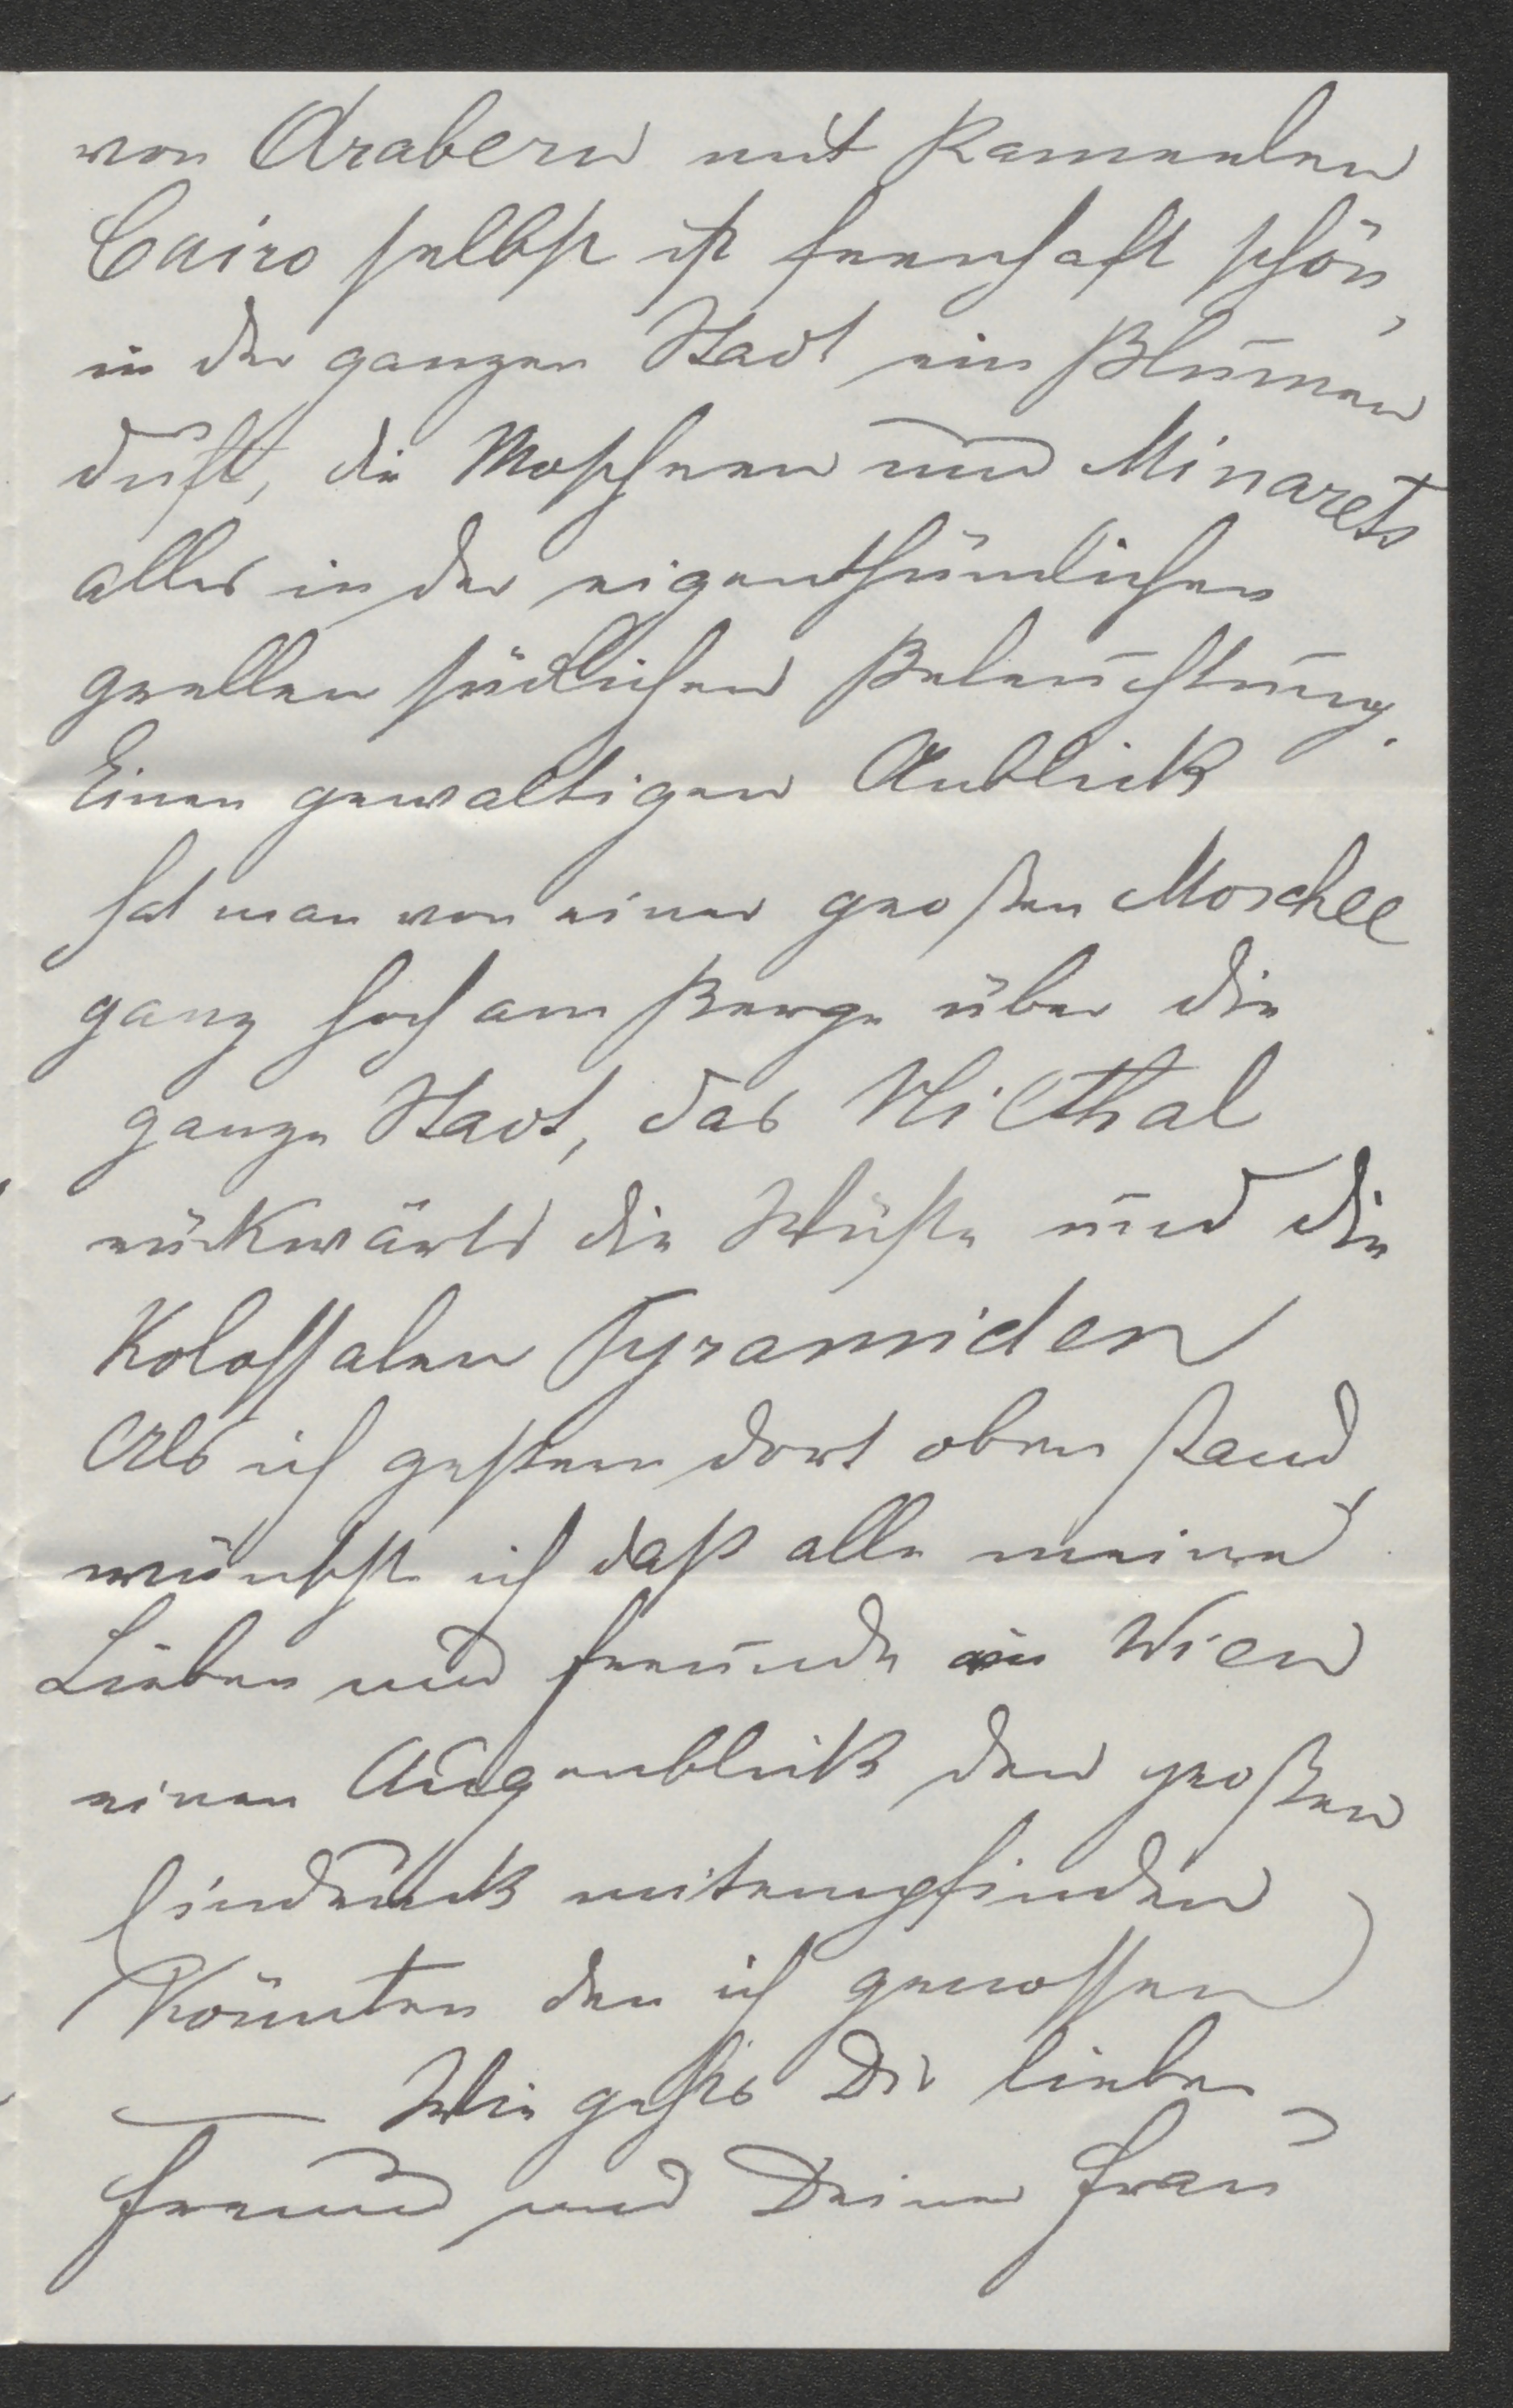 von Arabern mit Kameelen
Cairo selbst ist feenhaft schön,
in der ganzen Stadt ein Blumen
duft, die Moscheen und Minarets
alles in der eigenthümlichen
grellen südlichen Beleuchtung.
Einen gewaltigen Anblick
hat man von einer großen Moschee
ganz hoch am Berge über die
ganze Stadt, das Nilthal
rückwärts die Wüste und die
Kolossalen Pyramiden
Als ich gestern dort oben stand,
wünschte ich daß alle meine
Lieben und Freunde in Wien
einen Augenblick den großen
Eindruck mitempfinden
könnten den ich genossen
— Wie gehts Dir lieber
Freund und Deiner Frau